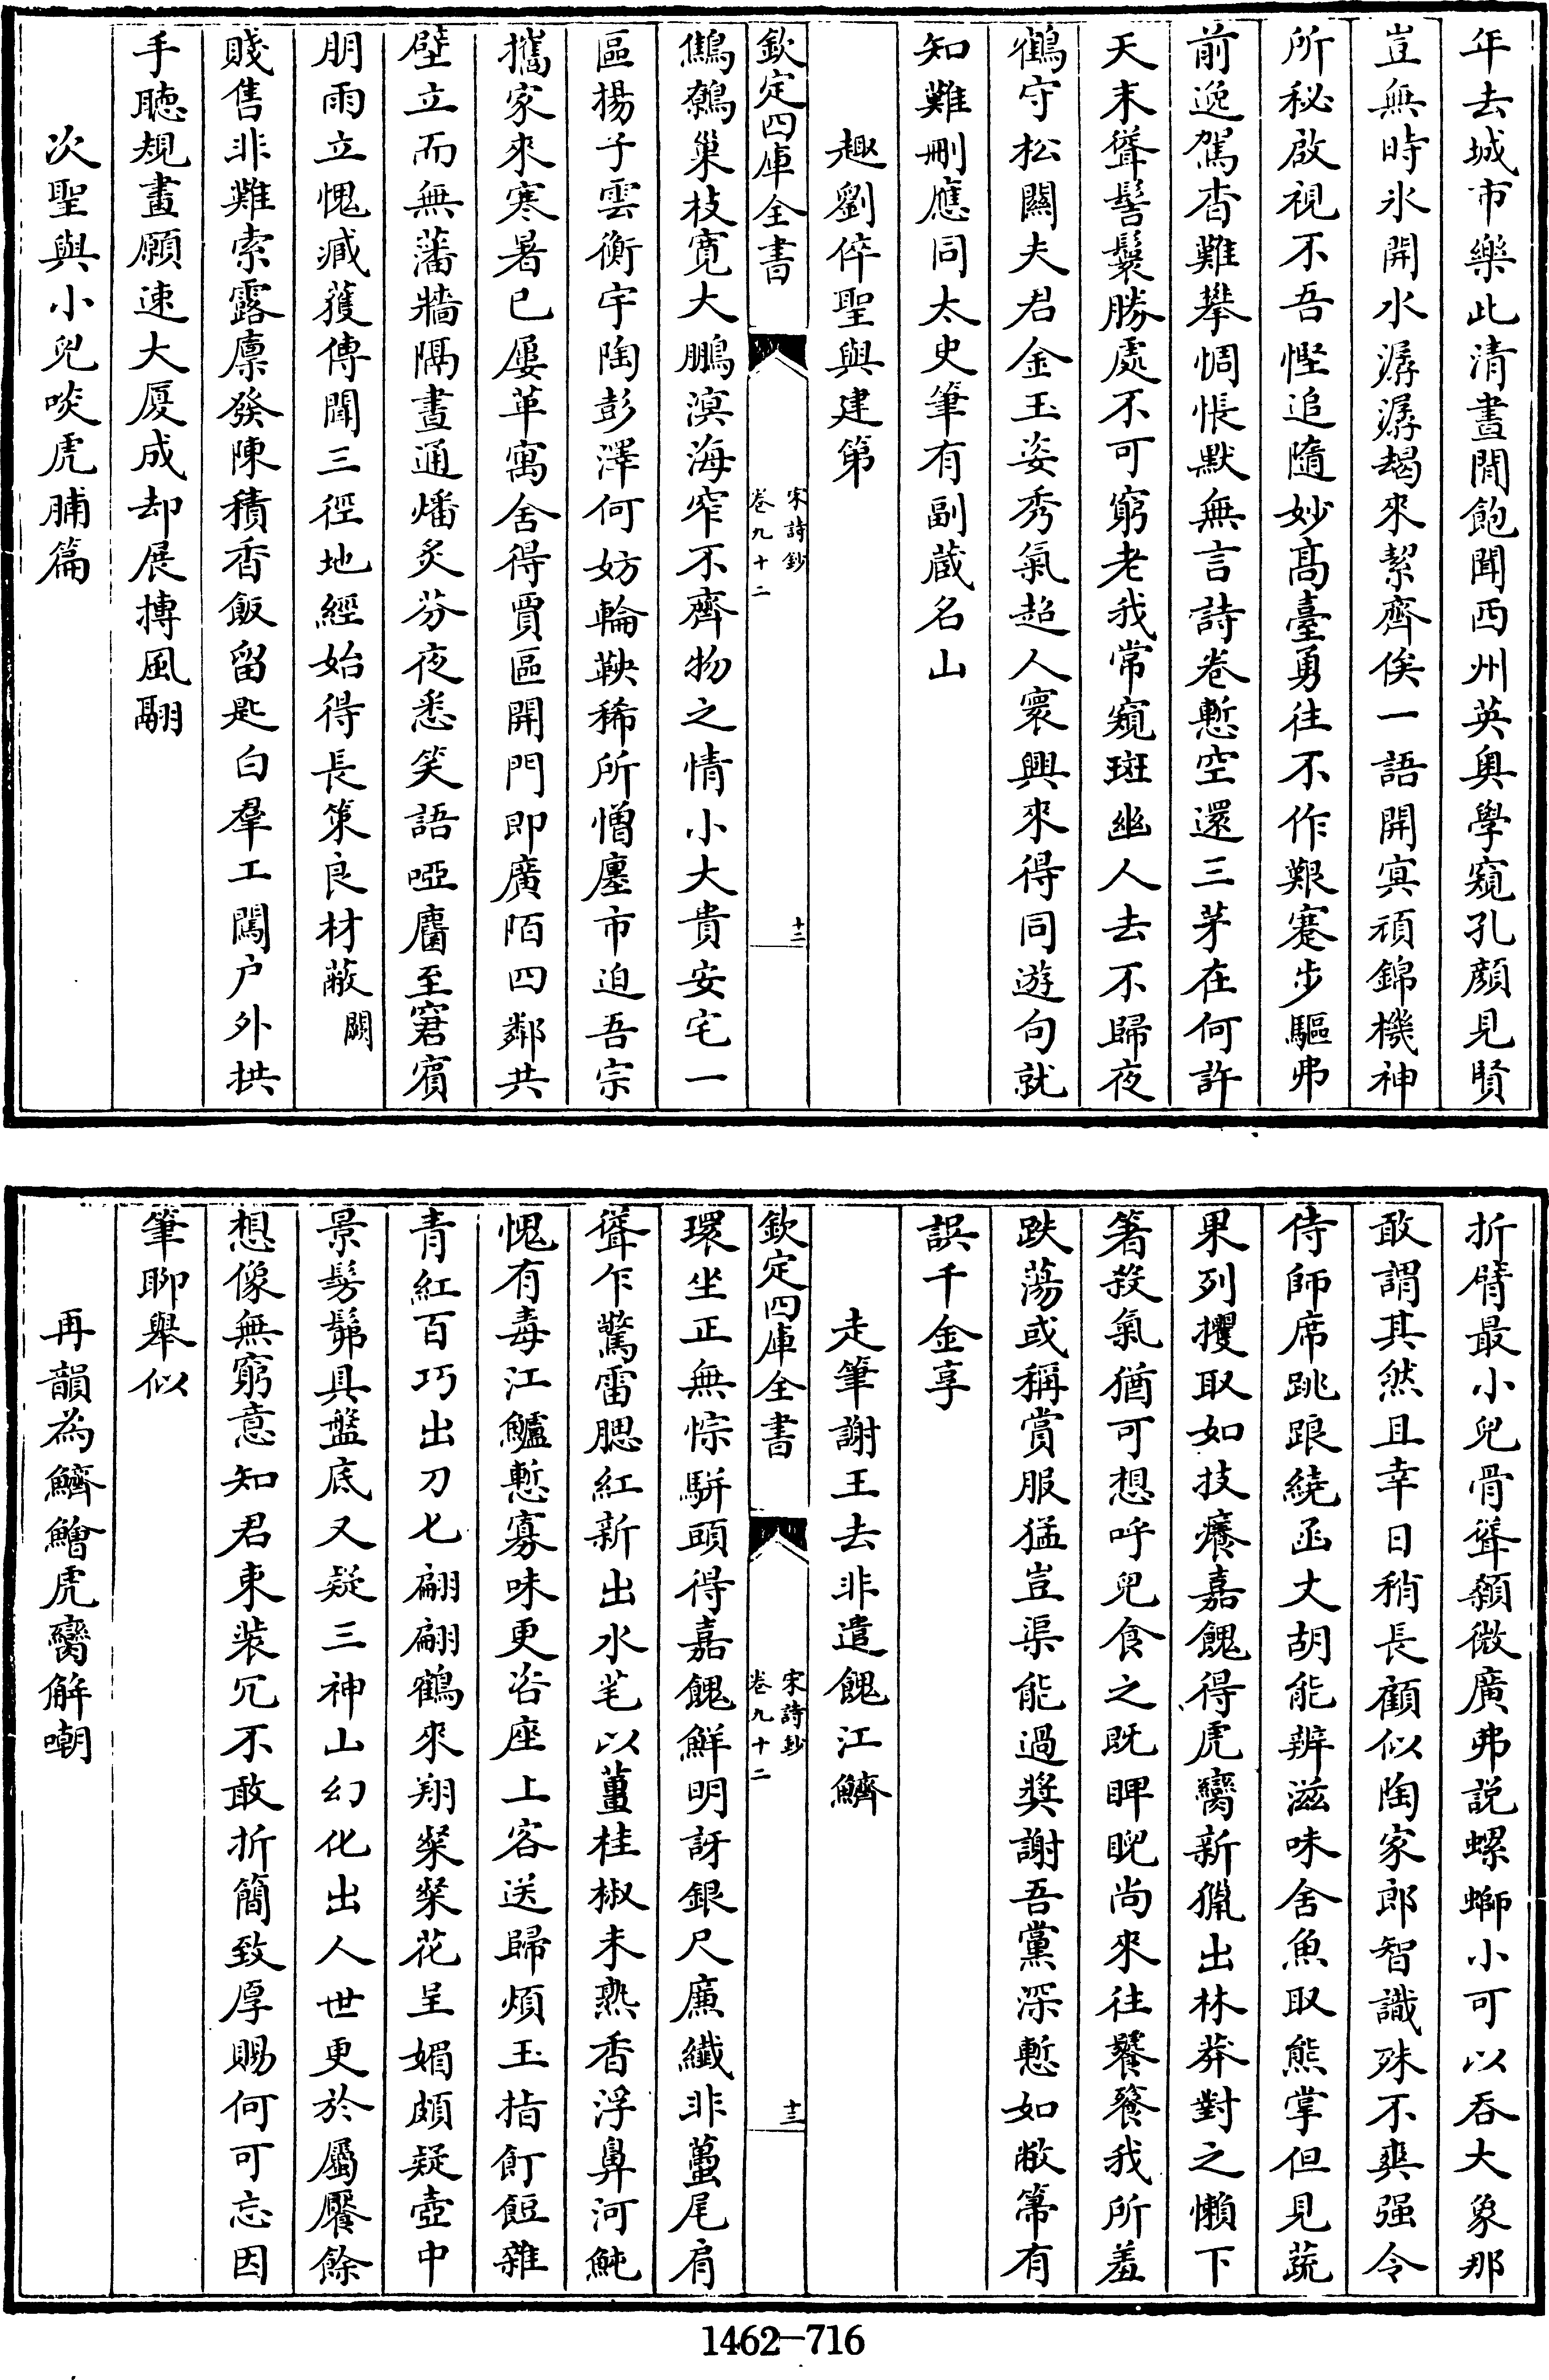 年去城市樂此清晝閒飽聞西州英奥學窺孔顔見賢
豈無時氷開水潺潺朅來絜齊俟一語開㝠頑錦機神
所秘啟視不吾慳追隨妙髙臺勇往不作艱蹇步驅弗
前逸駕杳難攀惆悵默無言詩巻慙空還三茅在何許
天末聳髻鬟勝處不可窮老我常窺斑幽人去不歸夜
鶴守松闗夫君金玉姿秀氣超人寰興來得同遊句就
知難刪應同太史筆有副蔵名山
趣劉倅聖與建第
欽定四庫全書
宋詩鈔
卷九十二
十二
鷦鷯巢枝寛大鵬溟海窄不齊物之情小大貴安宅一
區揚子雲衡宇陶彭澤何妨輪鞅稀所憎廛市迫吾宗
攜家來寒暑已屢革寓舍得賈區開門即廣陌四鄰共
壁立而無藩牆隔晝通燔炙芬夜悉笑語啞麕至窘賓
朋雨立愧臧獲傳聞三徑地經始得長策良材蔽闕
賤售非難索露廪發陳積香飯留匙白羣工闖户外拱
手聴規畫願速大厦成却展搏風翮
次聖與小兒啖虎脯篇
折臂最小兒骨聳額微廣弗説螺螄小可以吞大象那
敢謂其然且幸日稍長顧似陶家郎智識殊不爽强令
侍師席跳踉繞函丈胡能辨滋味舍魚取熊掌但見蔬
果列攫取如技癢嘉餽得虎臠新獵出林莽對之懶下
箸殺氣猶可想呼兒食之既睥睨尚來往饕餮我所羞
跌蕩或稱賞服猛豈渠能過奬謝吾黨深慙如敝帚有
誤千金享
走筆謝王去非遣餽江鱭
欽定四庫全書
宋詩鈔
卷九十二
十三
環坐正無悰駢頭得嘉餽鮮明訝銀尺廉纖非蠆尾肩
聳乍驚雷腮紅新出水芼以薑桂椒未熟香浮鼻河魨
愧有毒江鱸慙寡味更咨座上客送歸煩玉指飣餖雜
青紅百巧出刀匕翩翩鶴來翔粲粲花呈媚頗疑壺中
景髣髴具盤底又疑三神山幻化出人世更於屬饜餘
想像無窮意知君東裝冗不敢折簡致厚賜何可忘因
筆聊舉似
再韻為鱭鱠虎臠解嘲
1462-716